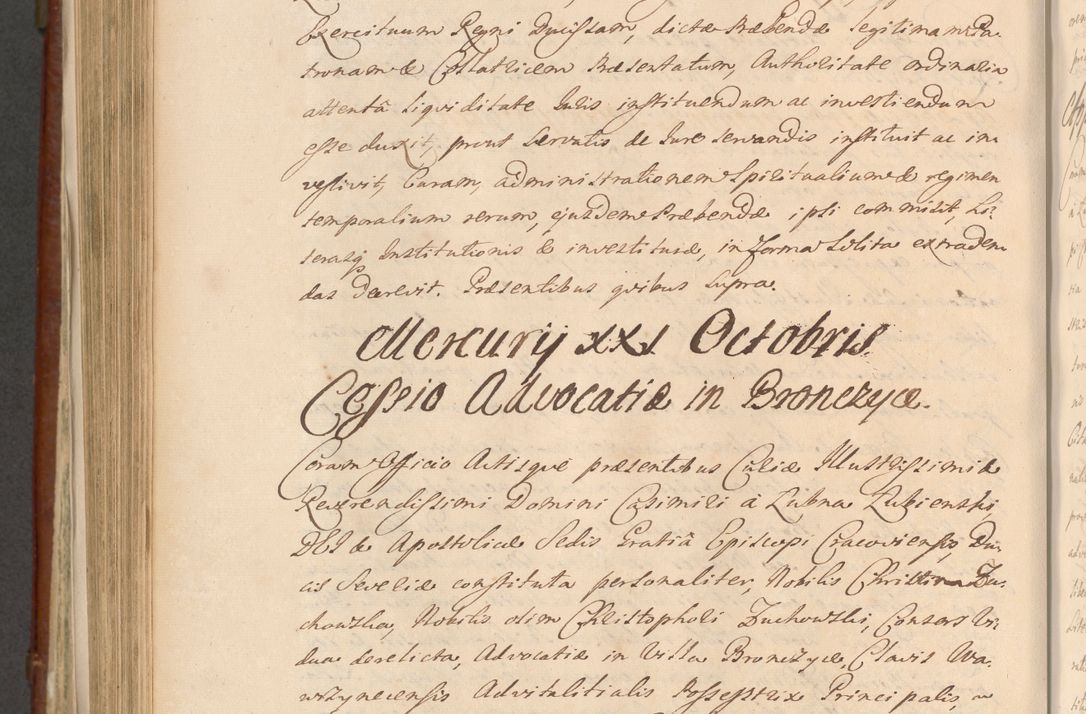 Exercituum Regni Ducissam, dictæ Præbendæ legitimam Pa-
tronam & Collatricem Præsentatum, Authoritate ordinaria
attentâ liqviditate Iuris instituendum ac investiendum
esse duxit, prout servatis de Iure servandis instituit ac in-
vestivit, Curam, administrationem Spiritualium & regimen
temporalium rerum, ejusdem Præbendæ ipsi commisit, Lit-
terasq Institutionis & investituræ, in forma solita extraden-
das decrevit. Præsentibus qvibus supra.
Mercurij XXI Octobris
Cessio Advocatiæ in Bronczyce.
Coram Officio Actisque præsentibus Curiæ Illustrissimi &
Reverendissimi Domini Casimiri à Lubna Lubienski,
DEI & Apostolicæ Sedis Gratiâ Episcopi Cracoviensis, Du-
cis Severiæ constituta personaliter, Nobilis Christina Zu-
chowska, Nobilis olim Christophori Zuchowski, Consors Vi-
dua derelicta, Advocatiæ in Villa Bronczyce, Clavis Wa-
wrzynecensis Advitalitialis Possesstrix Principalis,